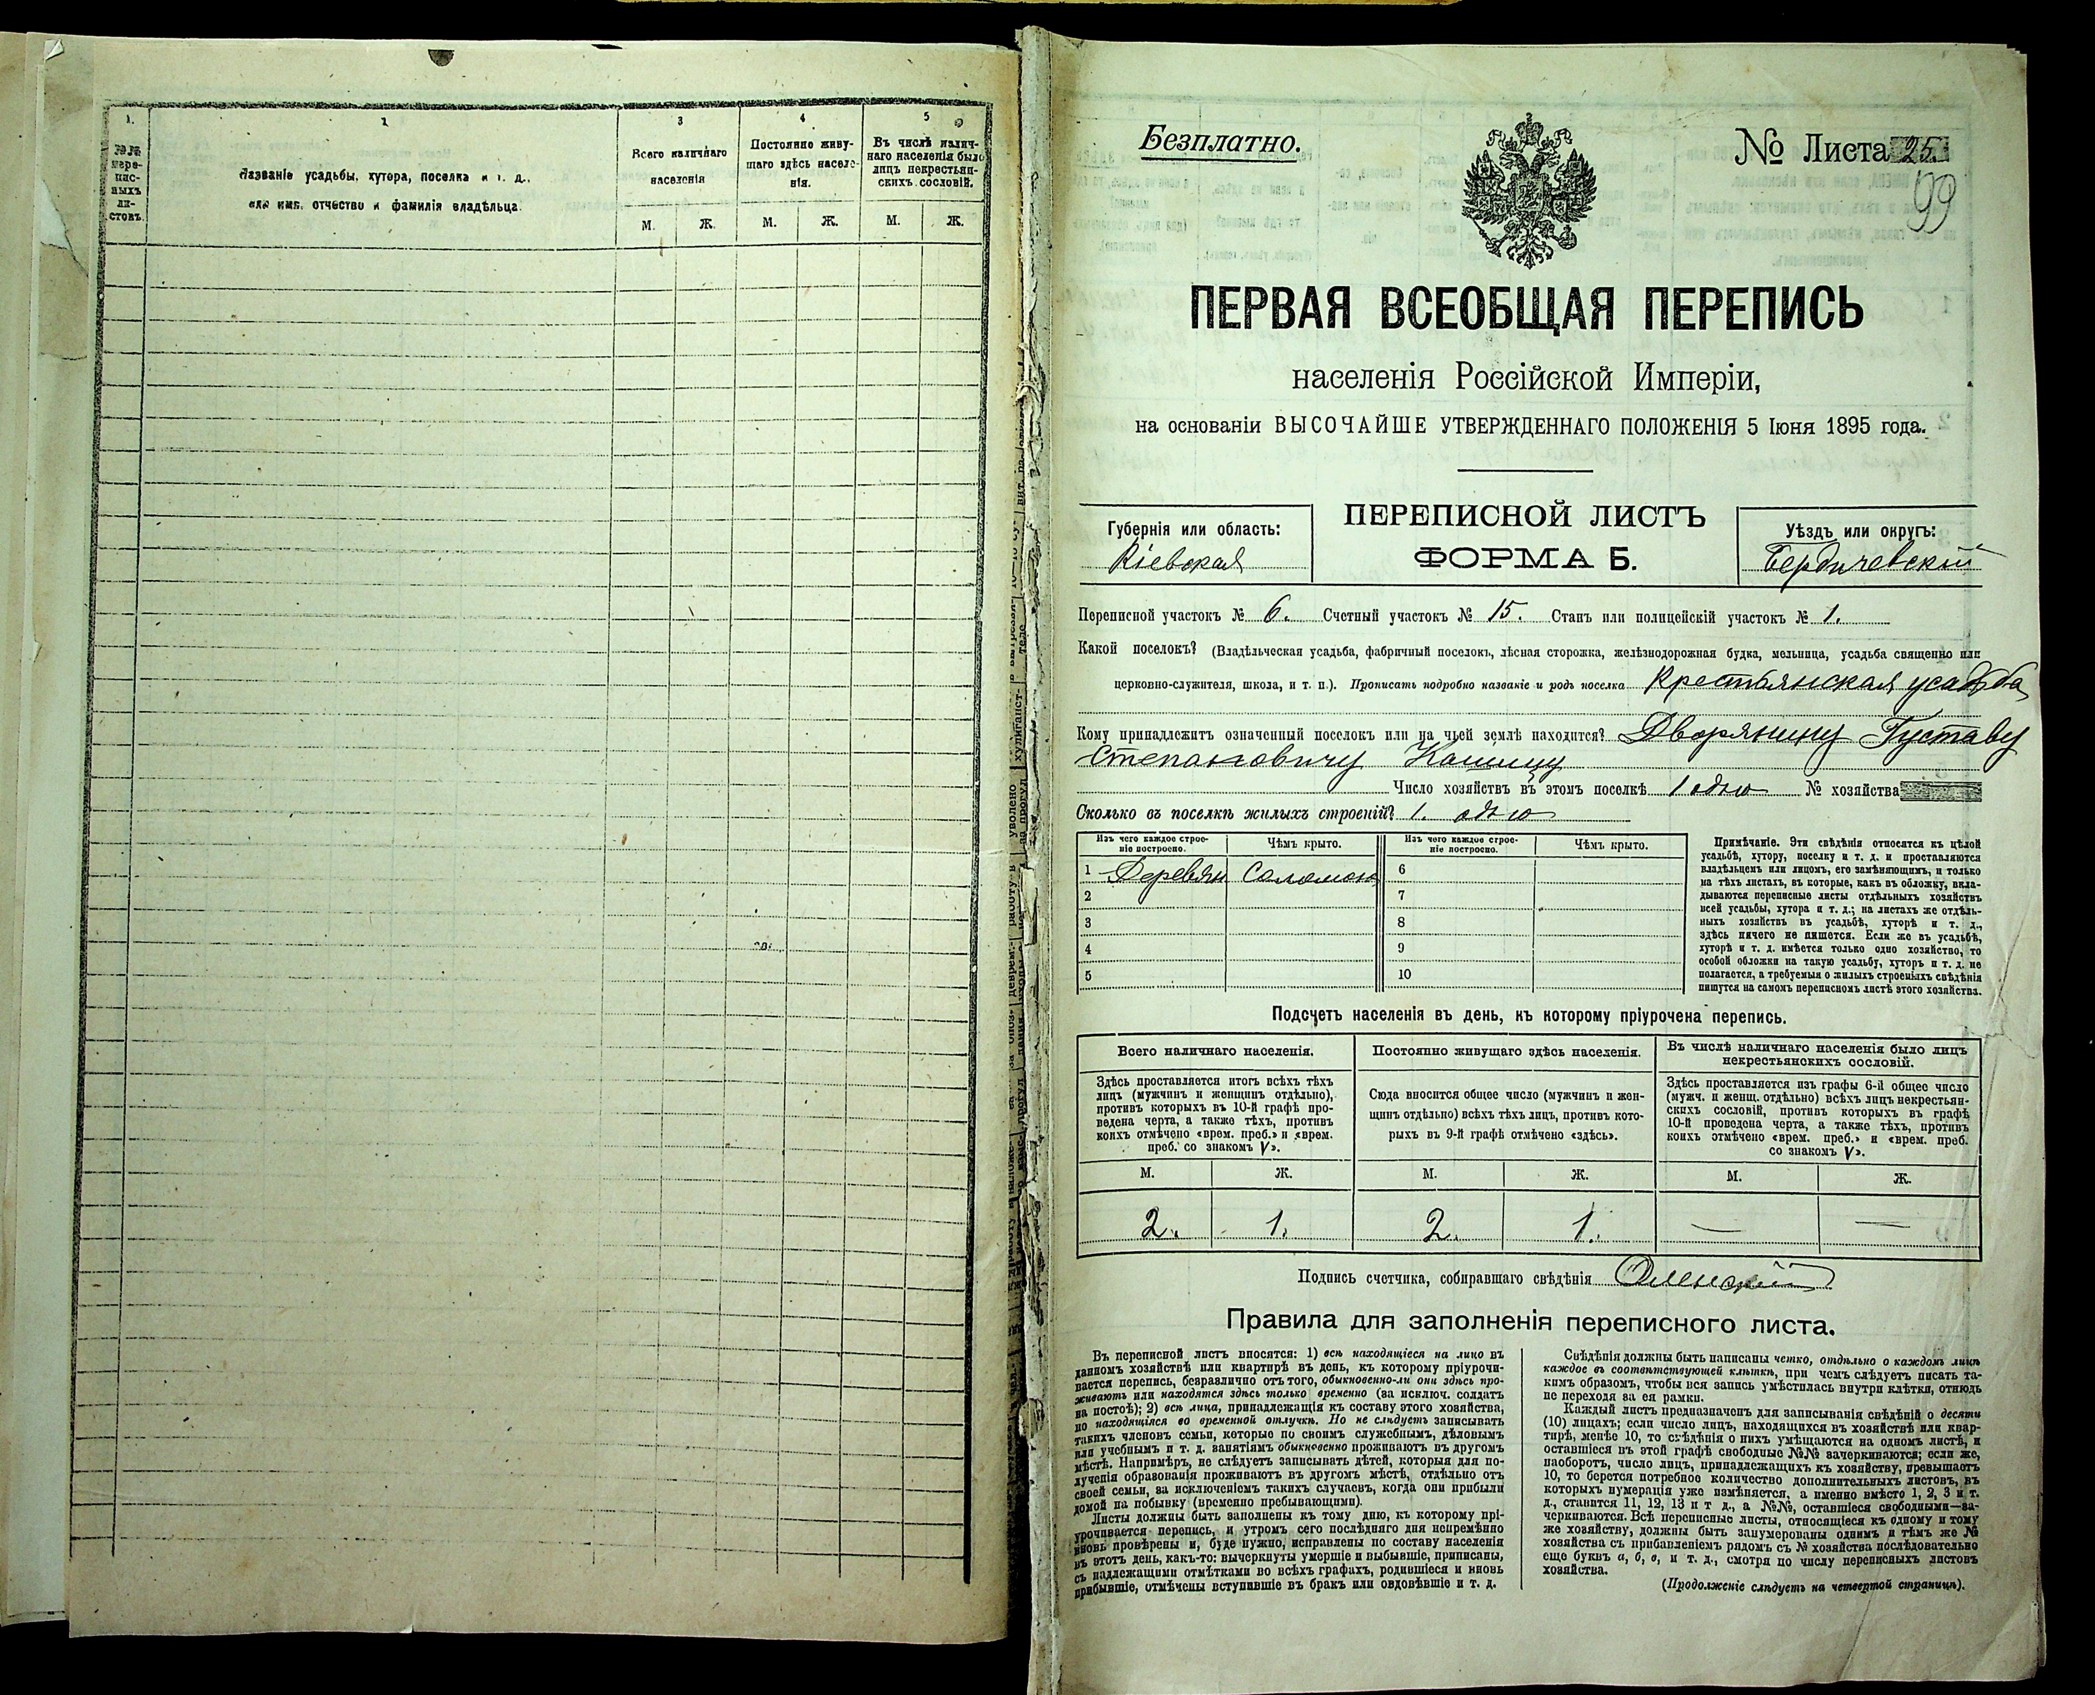 1.
2
3
4
5
№№ пере-
пис-
ныхъ
ли-
стовъ.
Названіе усадьбы, хутора, поселка и т. д.,
или имя, отчество и фамилія владѣльца.
Всего наличнаго
населенія
Постоянно живу-
щаго здѣсь населе-
нія.
Въ числѣ налич-
наго населенія было
лицъ некрестьян-
скихъ сословій.
М. Ж. М. Ж. М. Ж.
Безплатно.
№ Листа 25.
99
ПЕРВАЯ ВСЕОБЩАЯ ПЕРЕПИСЬ
населенія Россійской Имперіи,
на основаніи ВЫСОЧАЙШЕ УТВЕРЖДЕННАГО ПОЛОЖЕНІЯ 5 Іюня 1895 года.
Губернія или область:
Кіевская
ПЕРЕПИСНОЙ ЛИСТЪ
ФОРМА Б.
Уѣздъ или округъ:
Бердичевскій
Переписной участокъ № 6. Счетный участокъ № 15. Станъ или полицейскій участокъ № 1.
Какой поселокъ? (Владѣльческая усадьба, фабричный поселокъ, лѣсная сторожка, желѣзнодорожная будка, мельница, усадьба священно или
церковно-служителя, школа, и т. п.). Прописать подробно названіе и родъ поселка Крестьянская усадьба
Кому принадлежитъ означенный поселокъ или на чьей землѣ находится? Дворянину Густаву
Степановичу
Число хозяйствъ въ этомъ поселкѣ 1 одно № хозяйства
Сколько въ поселкѣ жилыхъ строеній? 1. одно
Изъ чего каждое строе-
ніе построено.
Чѣмъ крыто.
Изъ чего каждое строе-
ніе построено.
Чѣмъ крыто.
1 Деревян Соломою 6
2 7
3 8
4 9
5 10
Примѣчаніе. Эти свѣдѣнія относятся къ цѣлой
усадьбѣ, хутору, поселку и т. д. и проставляются
владѣльцемъ или лицомъ, его замѣняющимъ, и только
на тѣхъ листахъ, въ которые, какъ въ обложку, вкла-
дываются переписные листы отдѣльныхъ хозяйствъ
всей усадьбы, хутора и т. д.; на листахъ же отдѣль-
ныхъ хозяйствъ въ усадьбѣ, хуторѣ и т. д.,
здѣсь ничего не пишется. Если же въ усадьбѣ,
хуторѣ и т. д. имѣется только одно хозяйство, то
особой обложки на такую усадьбу, хуторъ и т. д. не
полагается, а требуемыя о жилыхъ строеніяхъ свѣдѣнія
пишутся на самомъ переписномъ листѣ этого хозяйства.
Подсчетъ населенія въ день, къ которому пріурочена перепись.
Всего наличнаго населенія.
Здѣсь проставляется итогъ всѣхъ тѣхъ
лицъ (мужчинъ и женщинъ отдѣльно),
противъ которыхъ въ 10-й графѣ про-
ведена черта, а также тѣхъ, противъ
коихъ отмѣчено «врем. преб.» и «врем.
преб. со знакомъ V».
Постоянно живущаго здѣсь населенія.
Сюда вносится общее число (мужчинъ и жен-
щинъ отдѣльно) всѣхъ тѣхъ лицъ, противъ кото-
рыхъ въ 9-й графѣ отмѣчено «здѣсь».
Въ числѣ наличнаго населенія было лицъ
некрестьянскихъ сословій.
Здѣсь проставляется изъ графы 6-й общее число
(мужч. и женщ. отдѣльно) всѣхъ лицъ некрестьян-
скихъ сословій, противъ которыхъ въ графѣ
10-й проведена черта, а также тѣхъ, противъ
коихъ отмѣчено «врем. преб.» и «врем. преб.
со знакомъ V».
М. Ж. М. Ж. М. Ж.
2. 1. 2. 1. — —
Подпись счетчика, собиравшаго свѣдѣнія
Правила для заполненія переписного листа.
Въ переписной листъ вносятся: 1) всѣ находящіеся на лицо въ
данномъ хозяйствѣ или квартирѣ въ день, къ которому пріурочи-
вается перепись, безразлично отъ того, обыкновенно-ли они здѣсь про-
живаютъ или находятся здѣсь только временно (за исключ. солдатъ
на постоѣ); 2) всѣ лица, принадлежащія къ составу этого хозяйства,
но находящіяся во временной отлучкѣ. Но не слѣдуетъ записывать
такихъ членовъ семьи, которые по своимъ служебнымъ, дѣловымъ
или учебнымъ и т. д. занятіямъ обыкновенно проживаютъ въ другомъ
мѣстѣ. Напримѣръ, не слѣдуетъ записывать дѣтей, которыя для по-
лученія образованія проживаютъ въ другомъ мѣстѣ, отдѣльно отъ
своей семьи, за исключеніемъ такихъ случаевъ, когда они прибыли
домой на побывку (временно пребывающими).
Листы должны быть заполнены къ тому дню, къ которому прі-
урочивается перепись, и утромъ сего послѣдняго дня непремѣнно
вновь провѣрены и, буде нужно, исправлены по составу населенія
въ этотъ день, какъ-то: вычеркнуты умершіе и выбывшіе, приписаны,
съ надлежащими отмѣтками во всѣхъ графахъ, родившіеся и вновь
прибывшіе, отмѣчены вступившіе въ бракъ или овдовѣвшіе и т. д.
Свѣдѣнія должны быть написаны четко, отдѣльно о каждомъ лицѣ
каждое въ соотвѣтствующей клѣткѣ, при чемъ слѣдуетъ писать та-
кимъ образомъ, чтобы вся запись умѣстилась внутри клѣтки, отнюдь
не переходя за ея рамки.
Каждый листъ предназначенъ для записыванія свѣдѣній о десяти
(10) лицахъ; если число лицъ, находящихся въ хозяйствѣ или квар-
тирѣ, менѣе 10, то свѣдѣнія о нихъ умѣщаются на одномъ листѣ, и
оставшіеся въ этой графѣ свободные №№ зачеркиваются; если же,
наоборотъ, число лицъ, принадлежащихъ къ хозяйству, превышаетъ
10, то берется потребное количество дополнительныхъ листовъ, въ
которыхъ нумерація уже измѣняется, а именно вмѣсто 1, 2, 3 и т.
д., ставится 11, 12, 13 и т д., а №№, оставшіеся свободными—за-
черкиваются. Всѣ переписные листы, относящіеся къ одному и тому
же хозяйству, должны быть занумерованы однимъ и тѣмъ же №
хозяйства съ прибавленіемъ рядомъ съ № хозяйства послѣдовательно
еще буквъ а, б, в, и т. д., смотря по числу переписныхъ листовъ
хозяйства.
(Продолженіе слѣдуетъ на четвертой страницѣ).